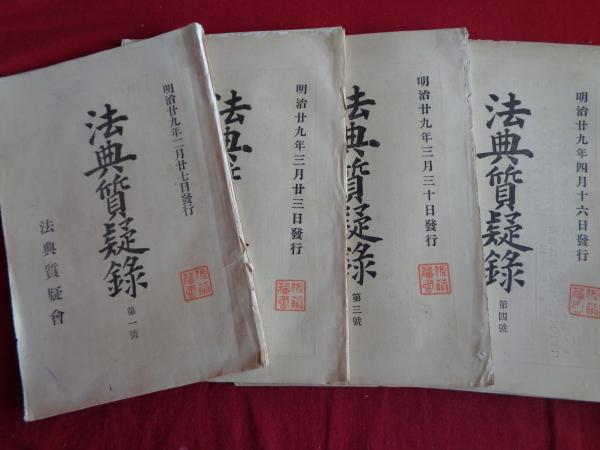 明治廿九年二月廿七日發行
法典質疑錄
第一號
法典質疑會
明治廿九年三月廿三日發行
法典
明治廿九年三月三十日發行
法典質疑錄
第三號
明治廿九年四月十六日發行
法典質疑錄
第四號